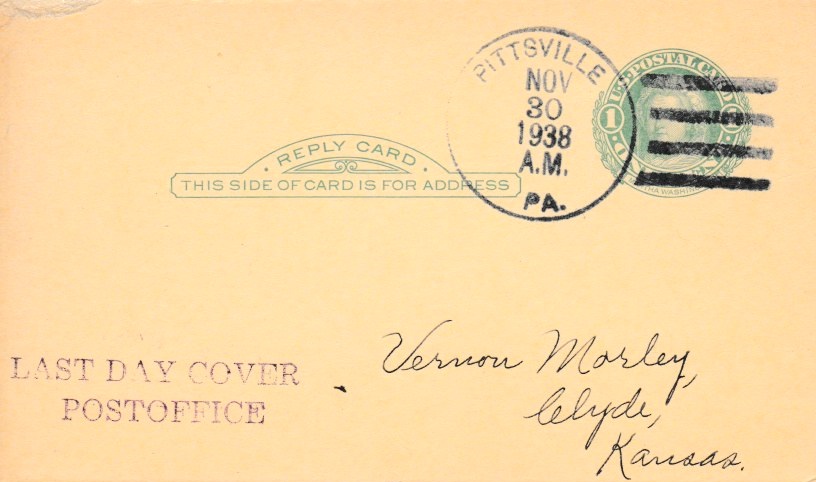 PITTSVILLE
NOV
30
1938
A.M.
PA.
U.S. POSTAL CARD
1
THA WASHIN
REPLY CARD
THIS SIDE OF CARD IS FOR ADDRESS
Vernon Morley,
Clyde,
Kansas.
LAST DAY COVER
POSTOFFICE